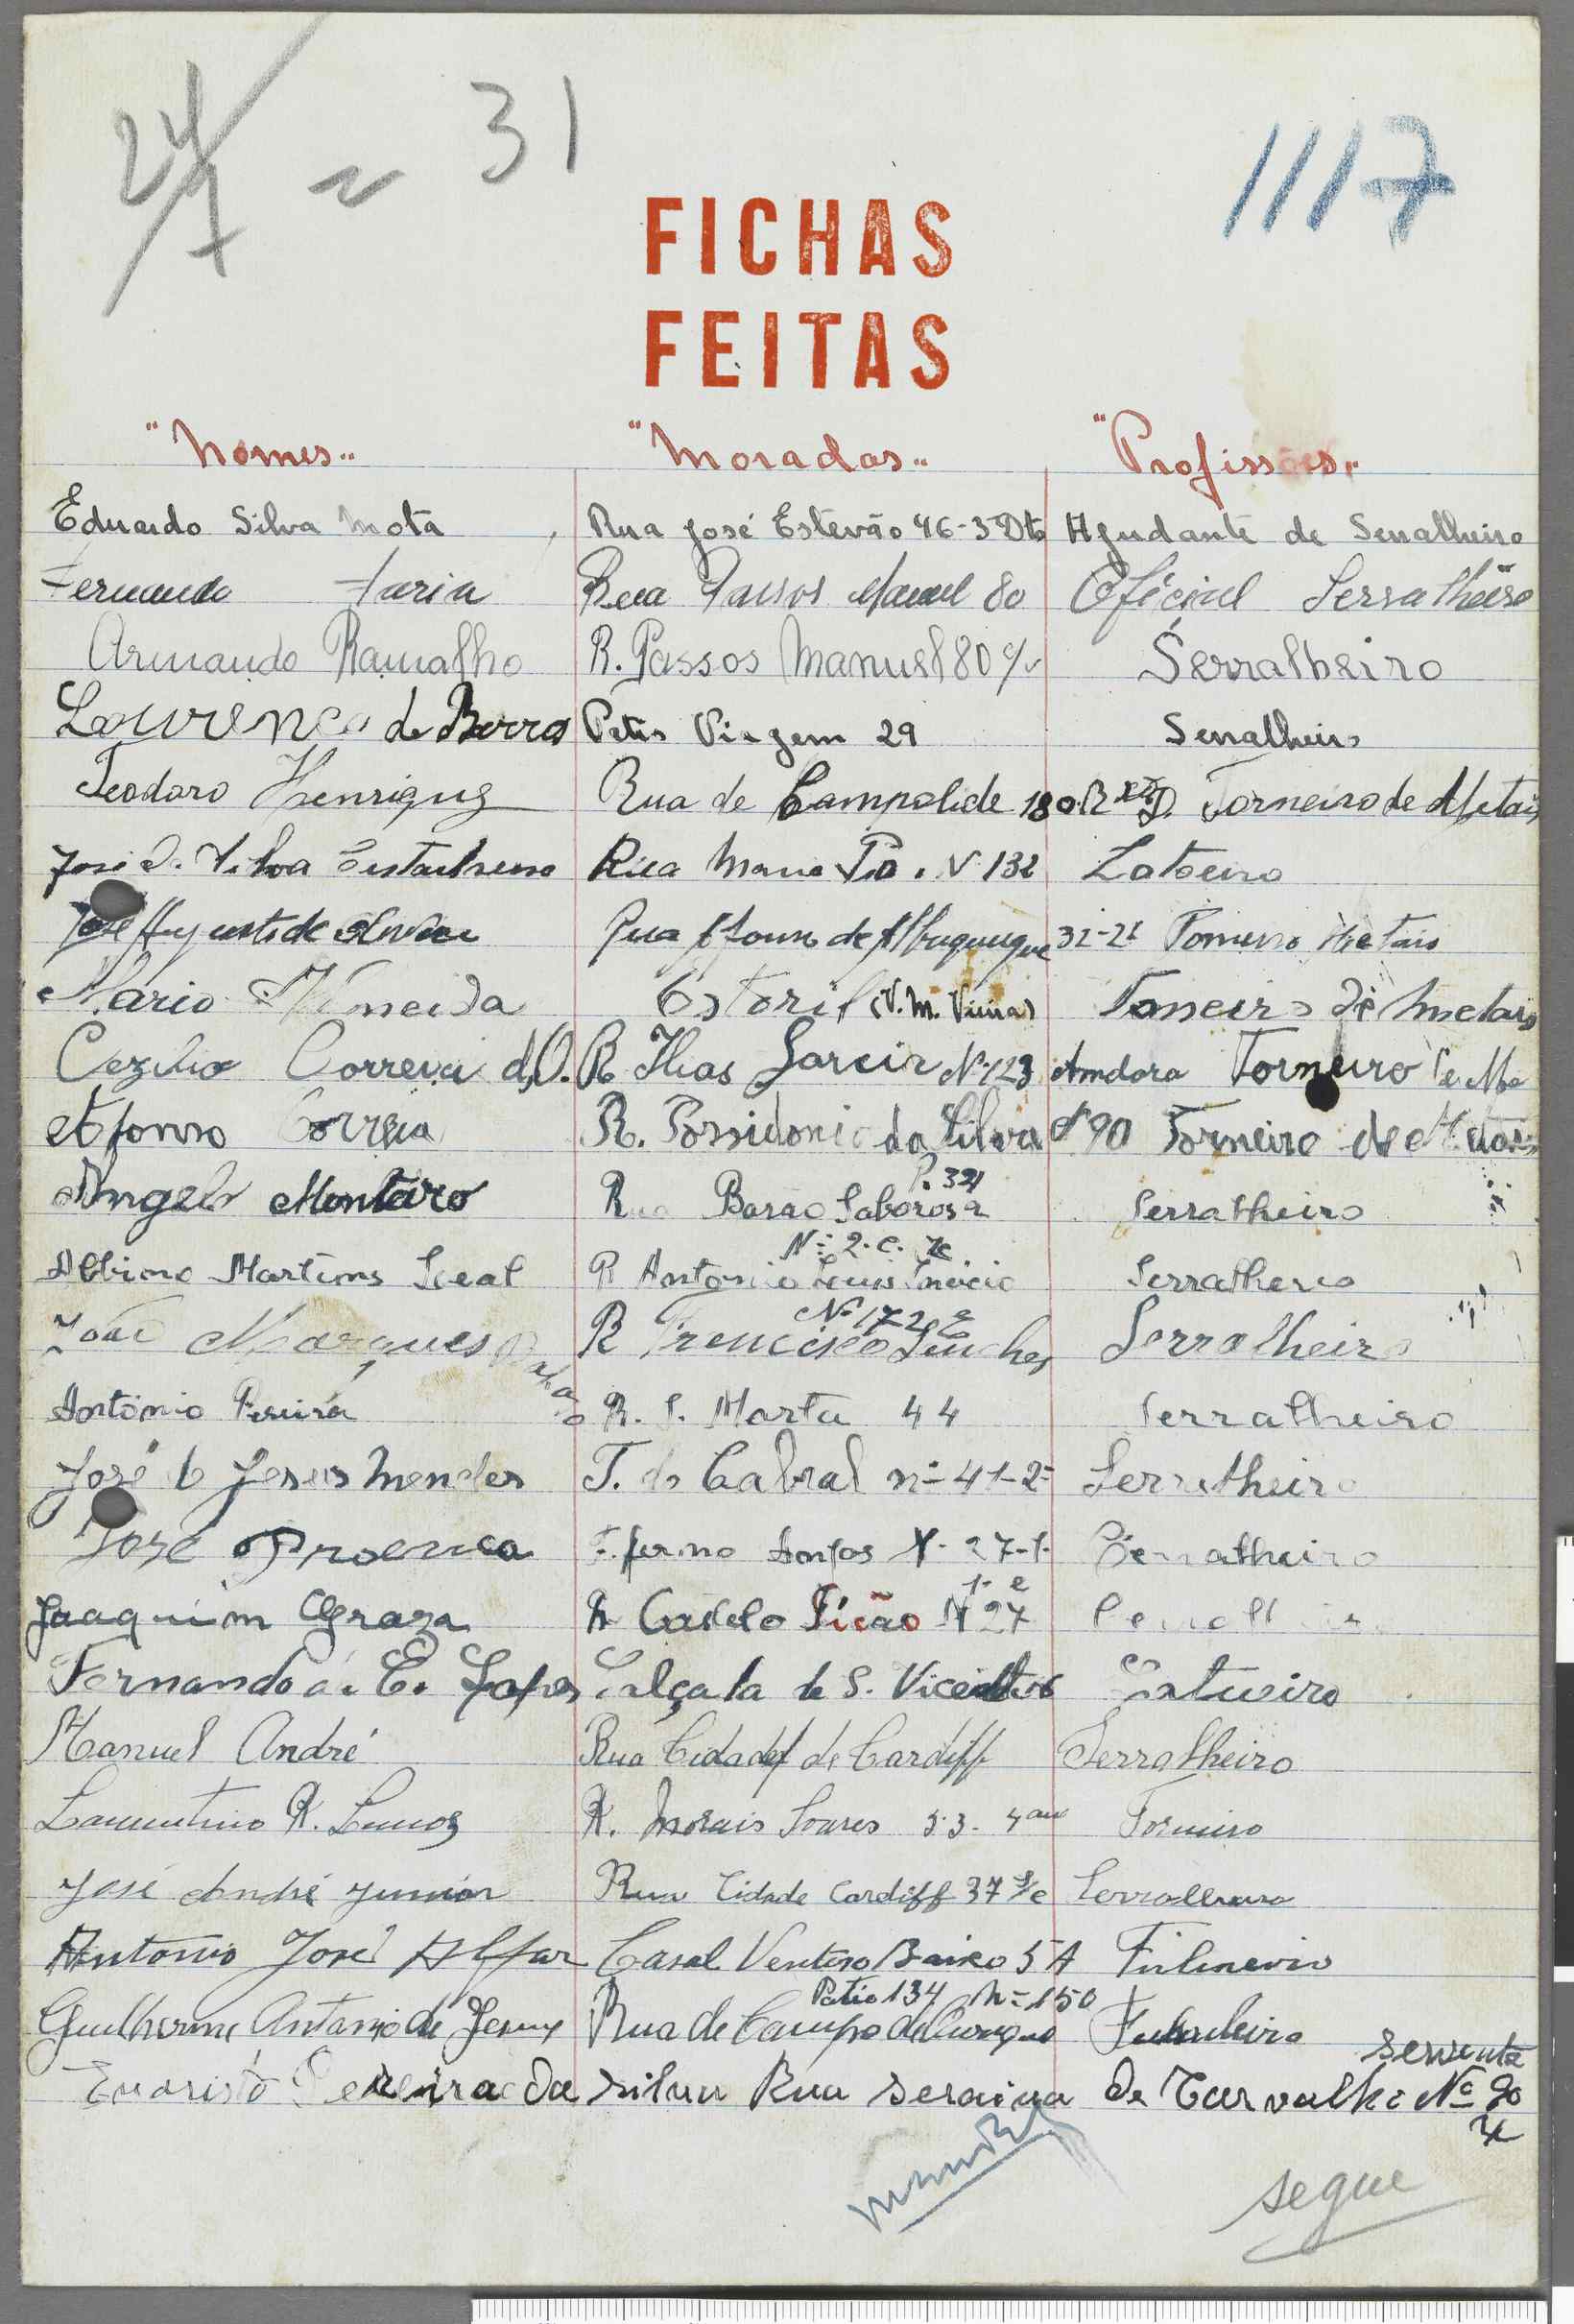 24/7 ~ 31
1117
FICHAS
FEITAS
"Nomes" "Moradas" "Profissões"
Eduardo Silva Mota Rua José Estevão 46-3º Dto Ajudante de Serralheiro
Fernando Faria Rua Passos Manuel 80 Oficial Serralheiro
Armando Ramalho R. Passos Manuel 80 c/v Serralheiro
Lourenço de Barros Patio Viagem 29 Serralheiro
Teodoro Henriques Rua de Campolide 180 R D. Torneiro de Metais
José d. Silva Rua Maria Pia. N 132 Latoeiro
José Augusto de Oliveira Rua Afonso de Albuquerque 32-2º Torneiro Metais
Mário Almeida Estoril (V. M. Viuva) Torneiro de Metais
Cezilio Correia d,O. R Elias Garcia Nº 123 Amdora Torneiro de Me
Afonso Correia R. Possidonio da Silva P 90 Torneiro de Metais
P. 321
Angelo Monteiro Rua Barao Saborosa Serralheiro
Nº 2. C.
Albino Martins Leal R Antonio Luis Inacio Serralheiro
Nº 17 2º E
João Marques R Francisco Sanches Serralheiro
António Pereira R. S. Marta 44 Serralheiro
José de Jesus Mendes T. do Cabral nº 41-2º Serralheiro
José Proença Anjos N. 27-1. Serralheiro
1º e
Joaquim Graza R Castelo Picão N 27
Fernando da E. Lopes Calçada de S. Vicente Latueiro
Manuel André Rua Cidade de Cardiff Serralheiro
R. Lemos R. Morais Soares 53. 4 and Torneiro
José André Junior Rua Cidade Cardiff 37 s/c Serralheiro
Antonio José Casal Ventoso Baixo 5 A Fulineiro
Patio 134 Nº 150
Guilherme Antonio de Jesus Rua de Campo de Ourique
servente
Evaristo Pereira da Silva Rua Saraiva de Carvalho Nº 90
segue